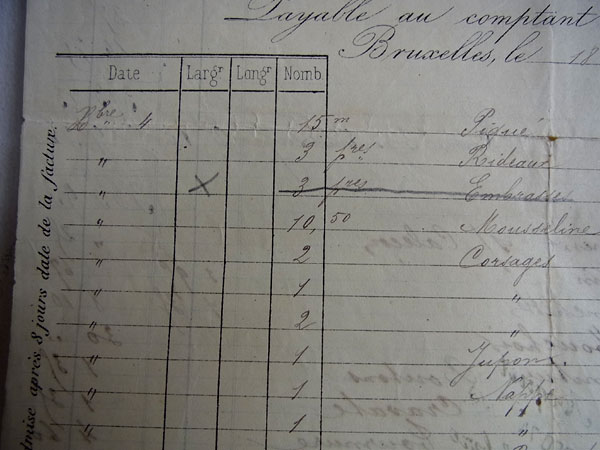 Payable au comptant
Bruxelles, le 18
Date Largr Longr Nomb
Xbre 4 15 m Piqué
" 3 pres Rideaux
" X 3 pres Embrasses
" 10,50 Mousseline
" 2 Corsages
" 1 "
" 2 "
" 1 Jupon
" 1 Nappe
" 1 "
admise après 8 jours date de la facture